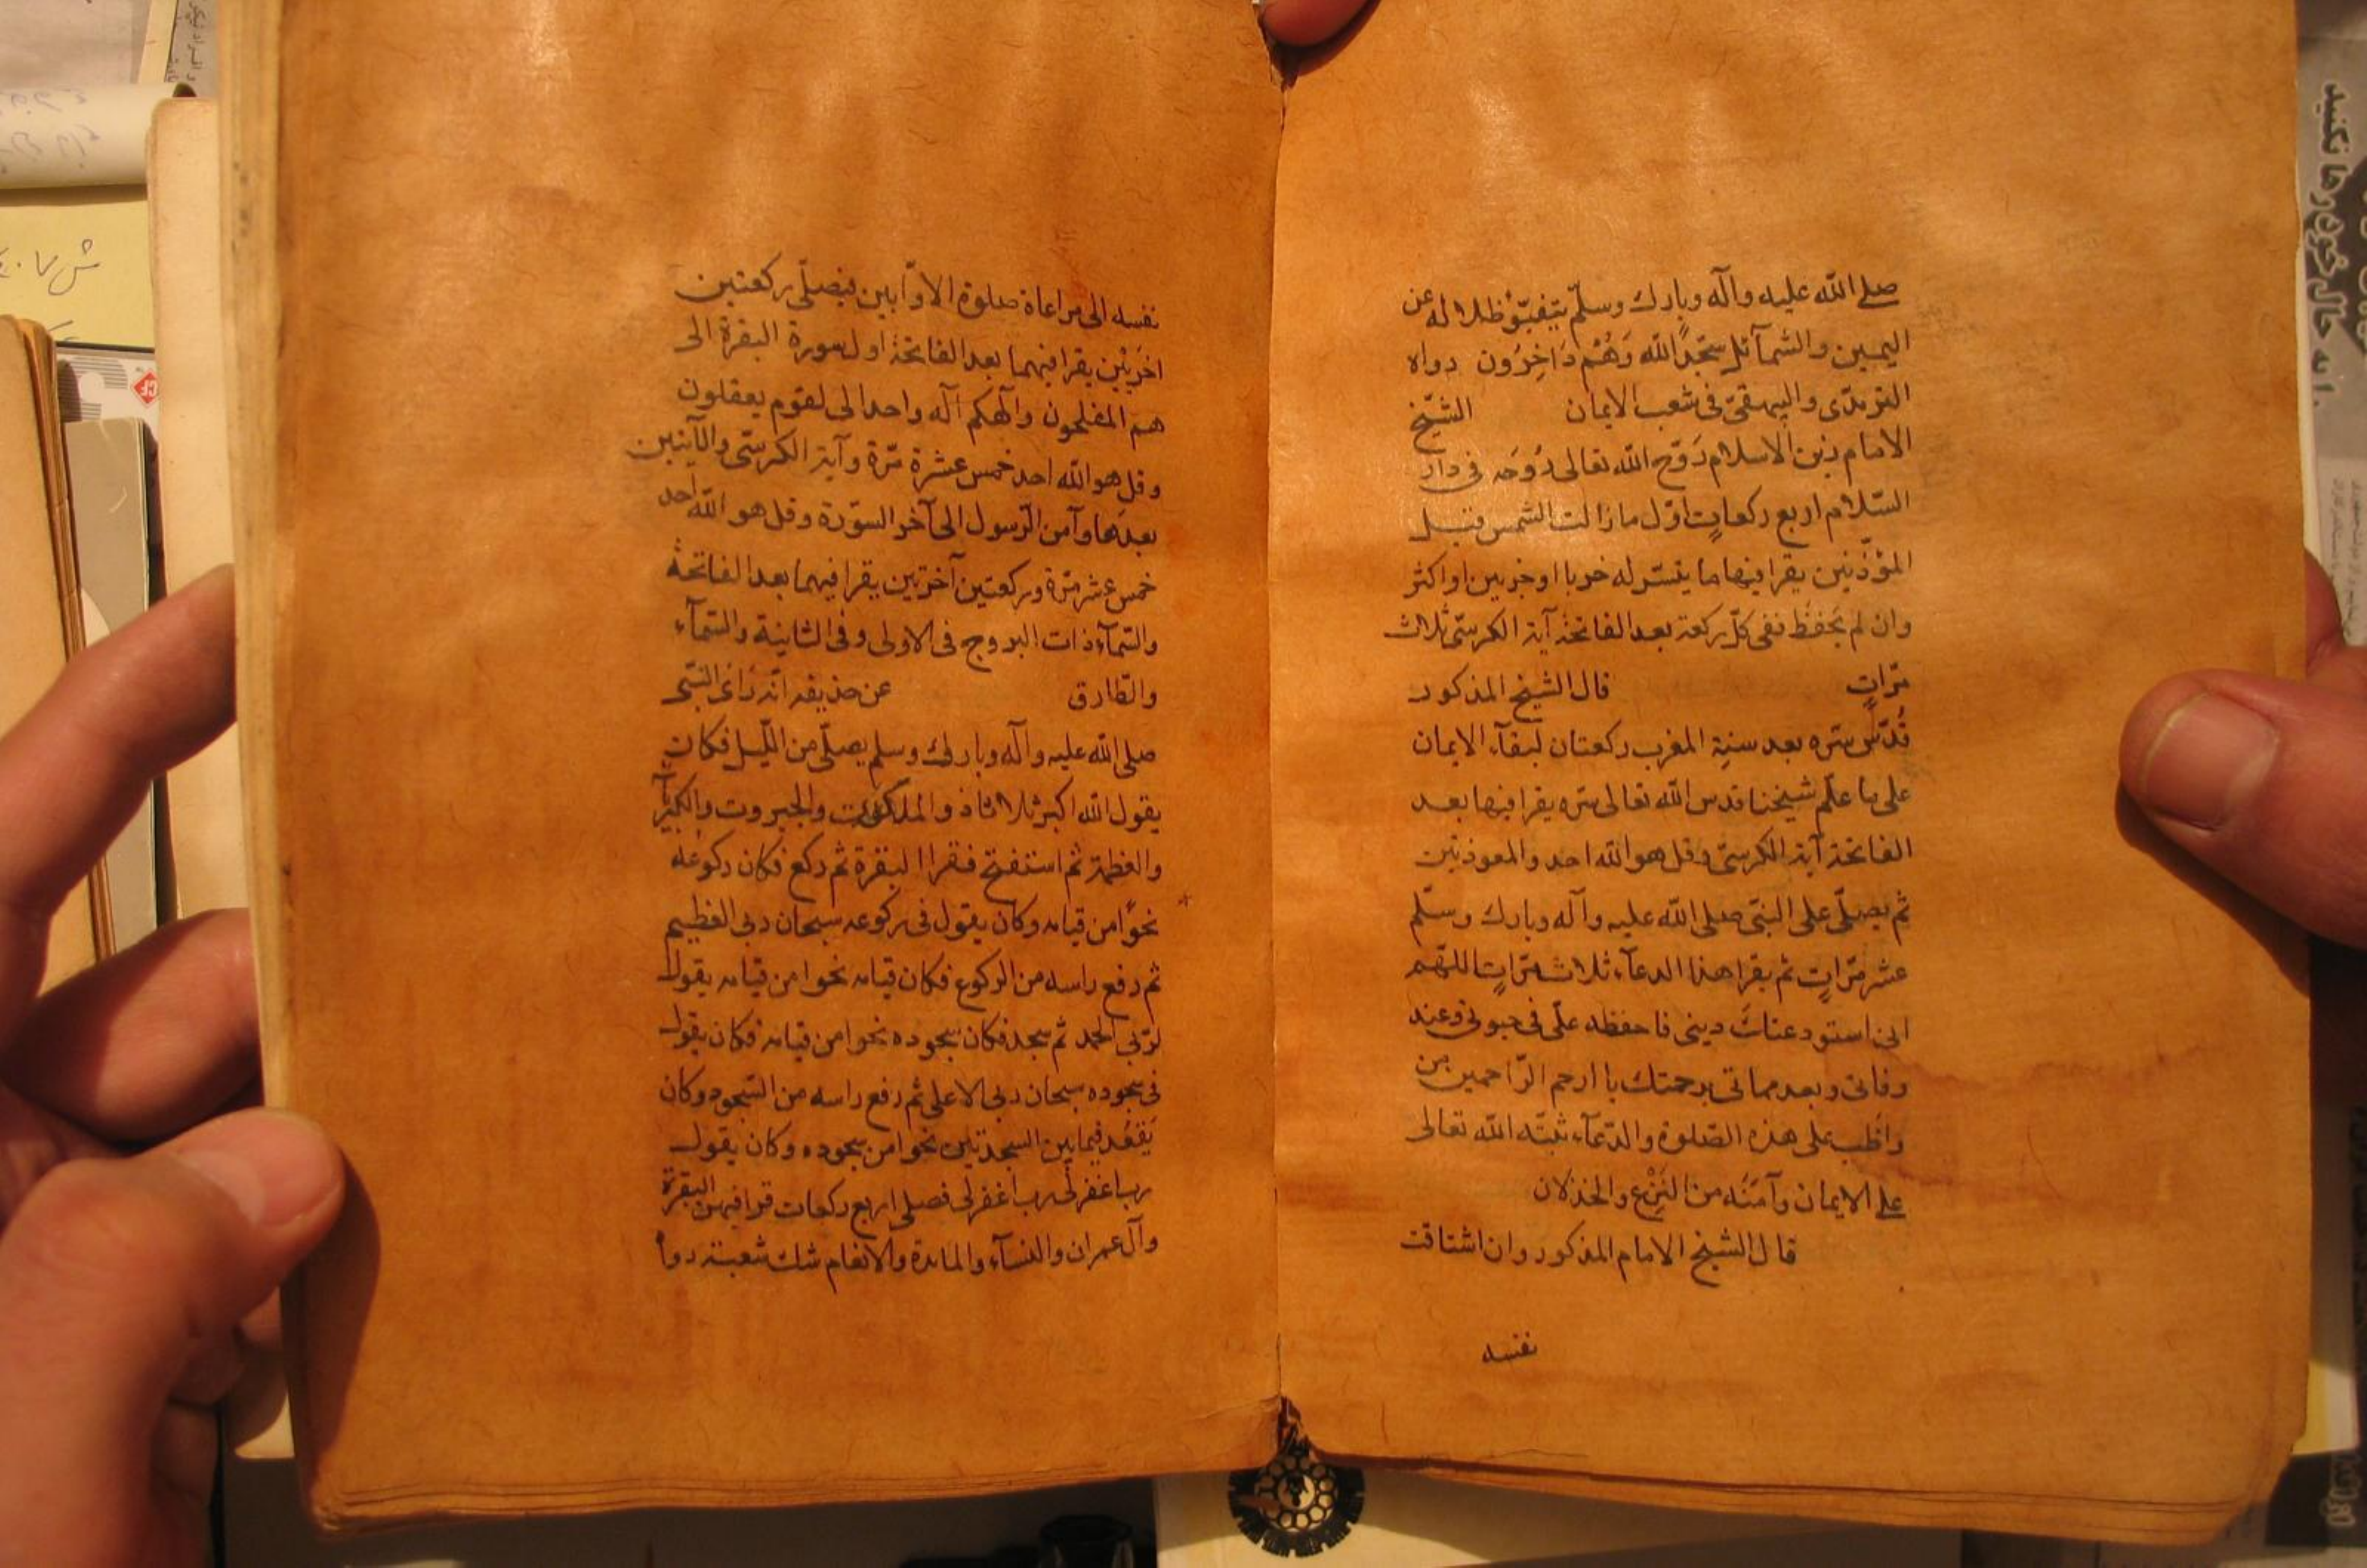 صلى الله عليه وآله وبارك وسلّم يتفيّؤُ ظلاله عن
اليمين والشمآئل سجّدًا لله وَهُمْ دَاخِرُون رواه
الترمذى والبيهقىّ فى شعب الايمان الشّيخ
الامام زين الاسلام رَوّح الله تعالى رُوحَه فى دار
السّلام اربع ركعاتٍ اوّل ما زالت الشمس قبل
المؤذّنين يقرا فيها ما يتسّر له حزبا او حزبين او اكثر
وان لم يَحفَظ ففى كلّ ركعة بعد الفاتحة آية الكرسىّ ثلاث
مرّاتٍ قال الشيخ المذكور
قُدّس سّره بعد سنةِ المغرب ركعتان لبقآء الايمان
على ما علّم شيخنا قدس الله تعالى سّره يقرا فيها بعد
الفاتحة آية الكرسىّ وقل هو الله احد والمعوذتين
ثم يصلّى على النبىّ صلى الله عليه وآله وبارك وسلّم
عشر مرّاتٍ ثم يقرا هذا الدعآء ثلاث مرّاتٍ اللهّم
انى استودعتك دينى فاحفظه علىّ فى حيوتى وعند
وفاتى وبعد مماتى برحمتك يا ارحم الرّاحمين من
واظب على هذه الصّلوة والدّعآء ثبّته الله تعالى
على الايمان وآمَنَه من النَزْع والخذلان
قال الشيخ الامام المذكور وان اشتاقت
نفسه
نفسه الى مراعاة صلوة الاوّابين فيصلّى ركعتين
اخرَيَيْن يقرا فيهما بعد الفاتحة اول سورة البقرة الى
هم المفلحون وآلهكم آله واحد الى لقوم يعقلون
وقل هو الله احد خمس عشرة مرّة وآية الكرسىّ والآيتين
بعدَها وآمن الرّسول الى آخر السوّرة وقل هو الله احد
خمس عشر مرّة وركعتين آخرَتين يقرا فيهما بعد الفاتحة
والسّمآء ذات البروج فى الاولى وفى الثانية والسّمآء
والطّارق عن حذيفه انّه رَاىَ النبّى
صلى الله عليه وآله وبارك وسلم يصلّى من اللّيل فكان
يقول الله اكبر ثلاثا ذو الملكوت والجبروت والكبريآء
والعظمة ثم استفتح فقرا البقرة ثم ركع فكان ركوعه
نحوًا من قيامه وكان يقول فى ركوعه سبحان ربى العظيم
ثم رفع راسه من الركوع فكان قيامه نحوا من قيامه يقول
لربّى الحمد ثم سجد فكان سجوده نحوا من قيامه فكان يقول
فى سجوده سبحان ربى الاعلى ثم رفع راسه من السّجود وكان
يَقعُد فيما بين السجدتين نحوا من سجوده وكان يقول
رب اغفرلى رب اغفرلى فصلى اربع ركعات قرا فيهن البقرة
وآل عمران والنسآء والمائدة والانعام شك شعبة رواه